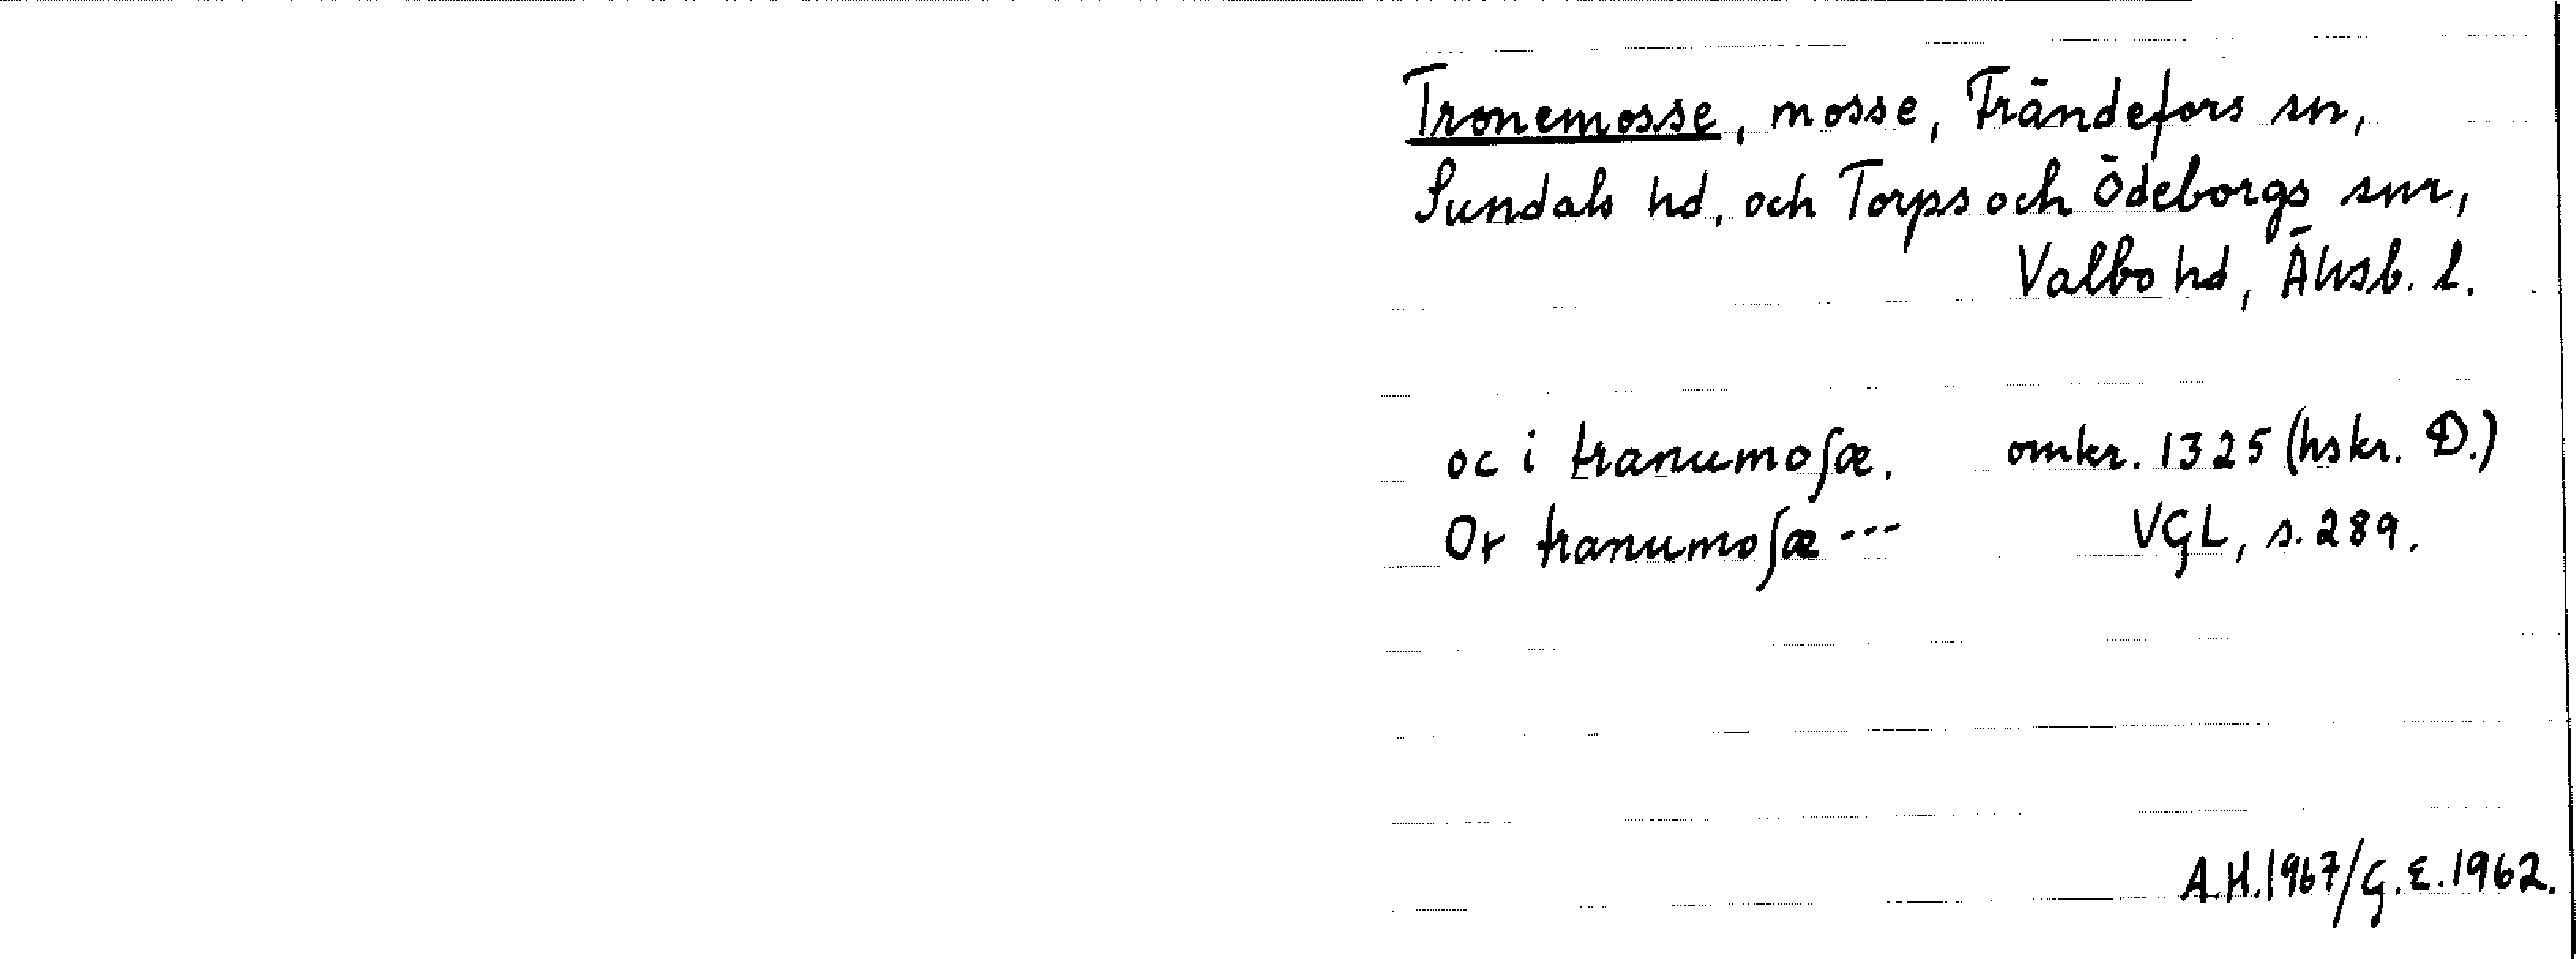 Tronemosse, mosse, Frändefors sn,
Sundals hd, och Torps och Ödeborgs snr,
Valbo hd, Älvsb. l.
oc i tranumoſæ. omkr. 1325 (hskr. D.)
Or tranumoſæ --- VGL, s. 289.
A.H. 1967/G.E. 1962.